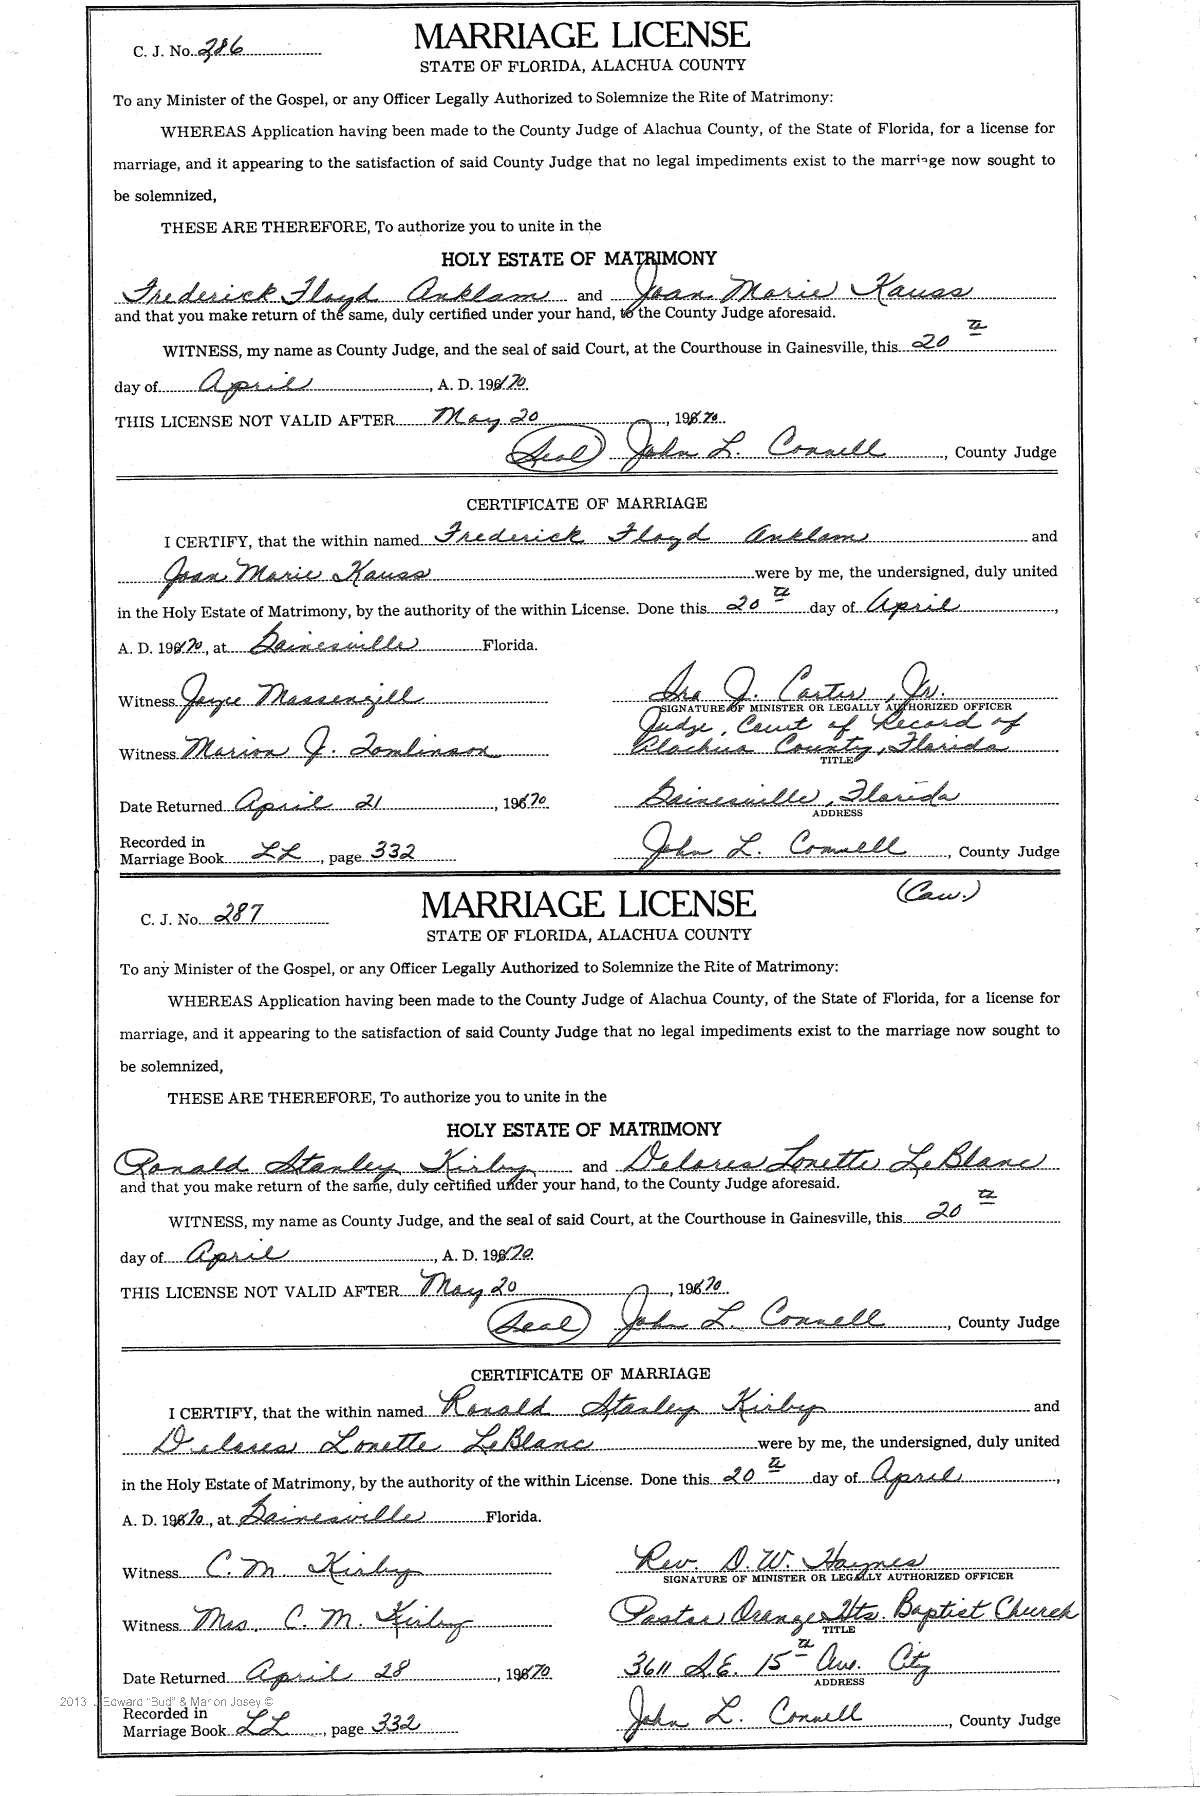 C. J. No. 286
MARRIAGE LICENSE
STATE OF FLORIDA, ALACHUA COUNTY
To any Minister of the Gospel, or any Officer Legally Authorized to Solemnize the Rite of Matrimony:
WHEREAS Application having been made to the County Judge of Alachua County, of the State of Florida, for a license for
marriage, and it appearing to the satisfaction of said County Judge that no legal impediments exist to the marriage now sought to
be solemnized,
THESE ARE THEREFORE, To authorize you to unite in the
HOLY ESTATE OF MATRIMONY
Frederick Floyd Anklam and Joan Marie Kauss
and that you make return of the same, duly certified under your hand, to the County Judge aforesaid.
WITNESS, my name as County Judge, and the seal of said Court, at the Courthouse in Gainesville, this 20th
day of April, A. D. 1970.
THIS LICENSE NOT VALID AFTER May 20, 1970.
(Seal) John L. Connell, County Judge
CERTIFICATE OF MARRIAGE
I CERTIFY, that the within named Frederick Floyd Anklam and
Joan Marie Kauss were by me, the undersigned, duly united
in the Holy Estate of Matrimony, by the authority of the within License. Done this 20th day of April,
A. D. 1970, at Gainesville Florida.
Witness Joyce Massengill Ira J. Carter, Jr.
SIGNATURE OF MINISTER OR LEGALLY AUTHORIZED OFFICER
Judge, Court of Record of
Witness Marion J. Tomlinson Alachua County, Florida
TITLE
Date Returned April 21, 1970 Gainesville, Florida
ADDRESS
Recorded in
Marriage Book LL, page 332 John L. Connell, County Judge
(Caw.)
C. J. No. 287
MARRIAGE LICENSE
STATE OF FLORIDA, ALACHUA COUNTY
To any Minister of the Gospel, or any Officer Legally Authorized to Solemnize the Rite of Matrimony:
WHEREAS Application having been made to the County Judge of Alachua County, of the State of Florida, for a license for
marriage, and it appearing to the satisfaction of said County Judge that no legal impediments exist to the marriage now sought to
be solemnized,
THESE ARE THEREFORE, To authorize you to unite in the
HOLY ESTATE OF MATRIMONY
Ronald Stanley Kirby and Delores Lonette LeBlanc
and that you make return of the same, duly certified under your hand, to the County Judge aforesaid.
WITNESS, my name as County Judge, and the seal of said Court, at the Courthouse in Gainesville, this 20th
day of April, A. D. 1970.
THIS LICENSE NOT VALID AFTER May 20, 1970.
(Seal) John L. Connell, County Judge
CERTIFICATE OF MARRIAGE
I CERTIFY, that the within named Ronald Stanley Kirby and
Delores Lonette LeBlanc were by me, the undersigned, duly united
in the Holy Estate of Matrimony, by the authority of the within License. Done this 20th day of April,
A. D. 1970, at Gainesville Florida.
Witness C. M. Kirby Rev. D. W. Haymes
SIGNATURE OF MINISTER OR LEGALLY AUTHORIZED OFFICER
Witness Mrs. C. M. Kirby Pastor Orange Hts. Baptist Church
TITLE
Date Returned April 28, 1970 3611 S.E. 15th Ave. City
ADDRESS
2013 J Edward "Bud" & Marion Josey ©
Recorded in
Marriage Book LL, page 332 John L. Connell, County Judge